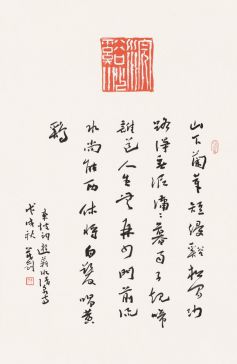 山下蘭芽短浸溪松間沙
路淨無泥蕭蕭暮雨子規啼
誰道人生無再少門前流
水尚能西休將白髮唱黃
鷄
東坡詞遊蘄水清泉寺
戊戌秋